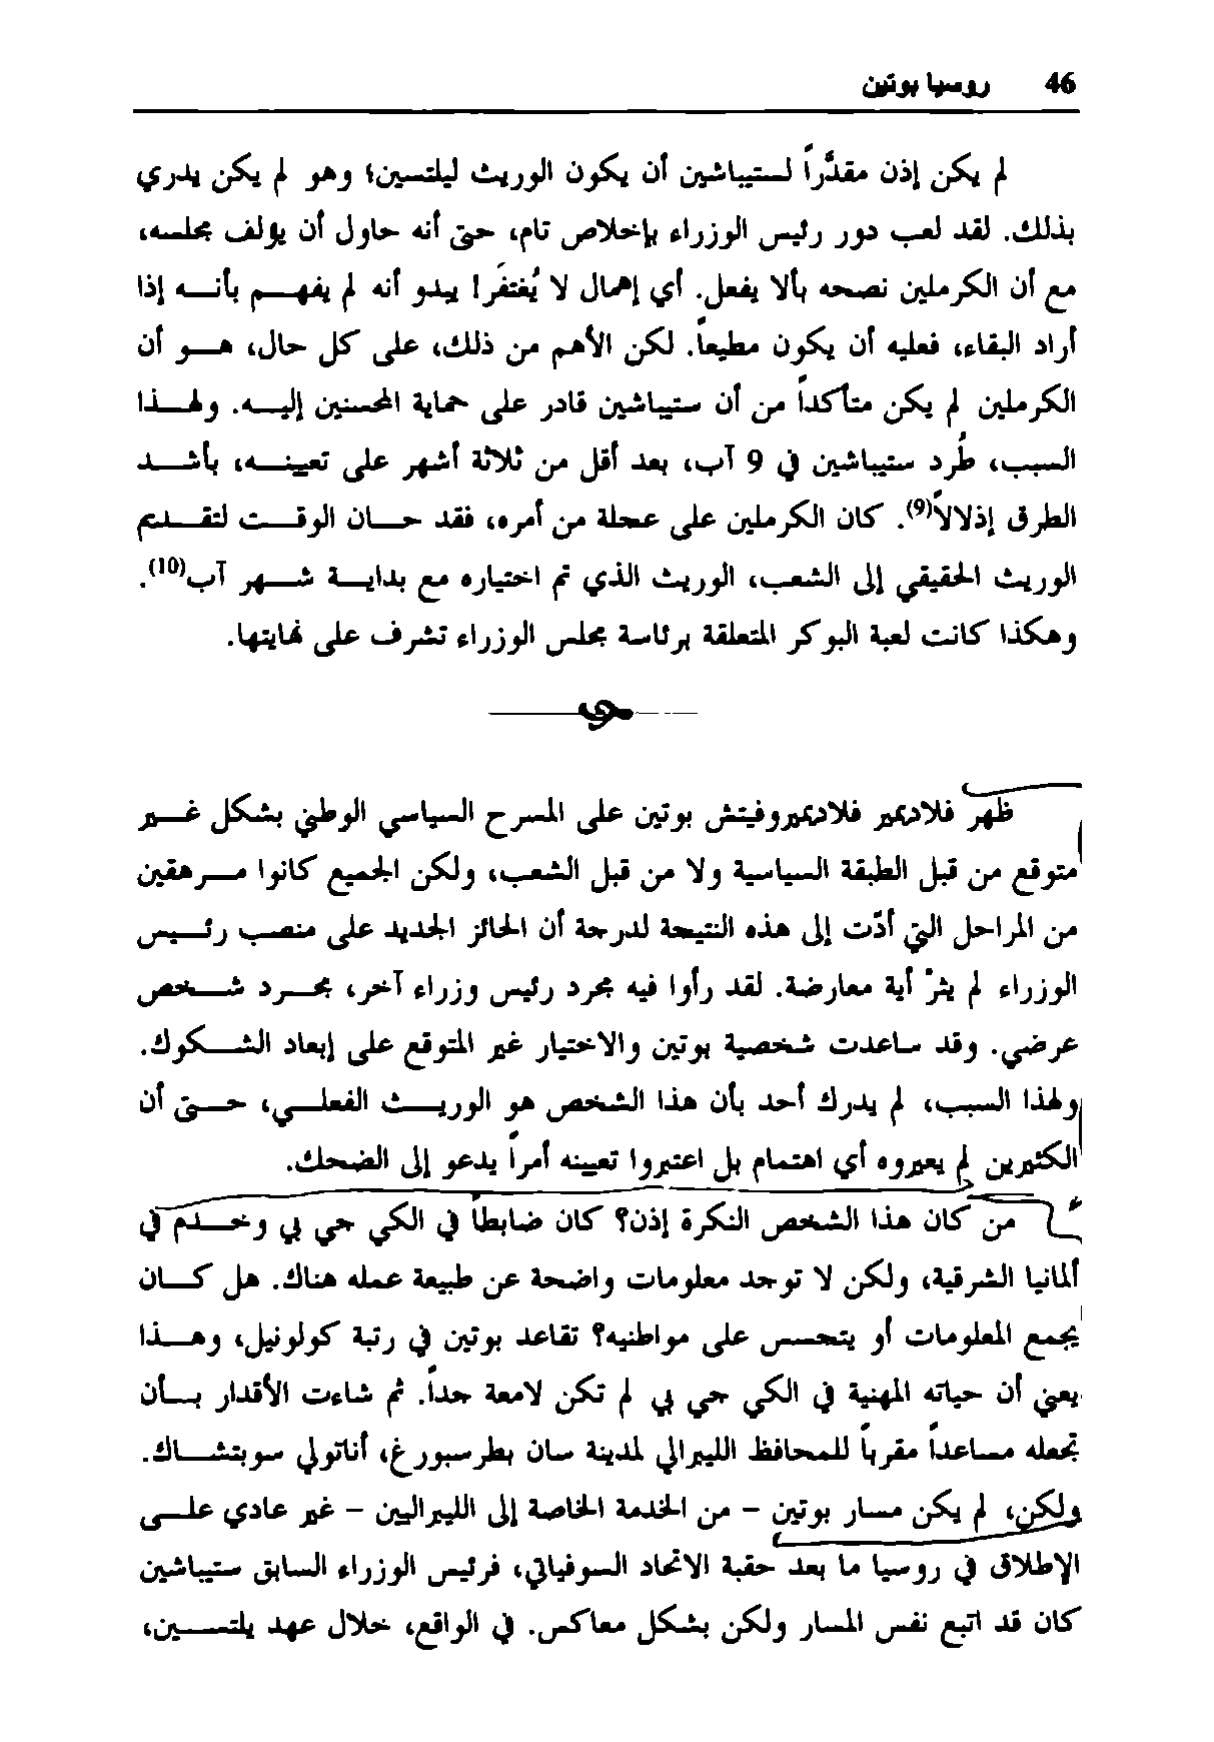 46 روسيا بوتين
لم يكن إذن مقدَّراً لستيباشين أن يكون الوريث ليلتسين؛ وهو لم يكن يدري
بذلك. لقد لعب دور رئيس الوزراء بإخلاص تام، حتى أنه حاول أن يؤلف مجلسه،
مع أن الكرملين نصحه بألا يفعل. أي إهمال لا يُغتفَر! يبدو أنه لم يفهم بأنه إذا
أراد البقاء، فعليه أن يكون مطيعاً. لكن الأهم من ذلك، على كل حال، هو أن
الكرملين لم يكن متأكداً من أن ستيباشين قادر على حماية المحسنين إليه. ولهذا
السبب، طُرد ستيباشين في 9 آب، بعد أقل من ثلاثة أشهر على تعيينه، بأشد
الطرق إذلالاً(9). كان الكرملين على عجلة من أمره، فقد حان الوقت لتقديم
الوريث الحقيقي إلى الشعب، الوريث الذي تم اختياره مع بداية شهر آب(10).
وهكذا كانت لعبة البوكر المتعلقة برئاسة مجلس الوزراء تشرف على نهايتها.
ظهر فلاديمير فلاديميروفيتش بوتين على المسرح السياسي الوطني بشكل غير
متوقع من قبل الطبقة السياسية ولا من قبل الشعب، ولكن الجميع كانوا مرهقين
من المراحل التي أدّت إلى هذه النتيجة لدرجة أن الحائز الجديد على منصب رئيس
الوزراء لم يثرْ أية معارضة. لقد رأوا فيه مجرد رئيس وزراء آخر، مجرد شخص
عرضي. وقد ساعدت شخصية بوتين والاختيار غير المتوقع على إبعاد الشكوك.
ولهذا السبب، لم يدرك أحد بأن هذا الشخص هو الوريث الفعلي، حتى أن
الكثيرين لم يعيروه أي اهتمام بل اعتبروا تعيينه أمراً يدعو إلى الضحك.
من كان هذا الشخص النكرة إذن؟ كان ضابطاً في الكي جي بي وخدم في
ألمانيا الشرقية، ولكن لا توجد معلومات واضحة عن طبيعة عمله هناك. هل كان
يجمع المعلومات أو يتجسس على مواطنيه؟ تقاعد بوتين في رتبة كولونيل، وهذا
يعني أن حياته المهنية في الكي جي بي لم تكن لامعة جداً. ثم شاءت الأقدار بأن
تجعله مساعداً مقرباً للمحافظ الليبرالي لمدينة سان بطرسبورغ، أناتولي سوبتشاك.
ولكن، لم يكن مسار بوتين – من الخدمة الخاصة إلى الليبراليين – غير عادي على
الإطلاق في روسيا ما بعد حقبة الاتحاد السوفياتي، فرئيس الوزراء السابق ستيباشين
كان قد اتبع نفس المسار ولكن بشكل معاكس. في الواقع، خلال عهد يلتسين،